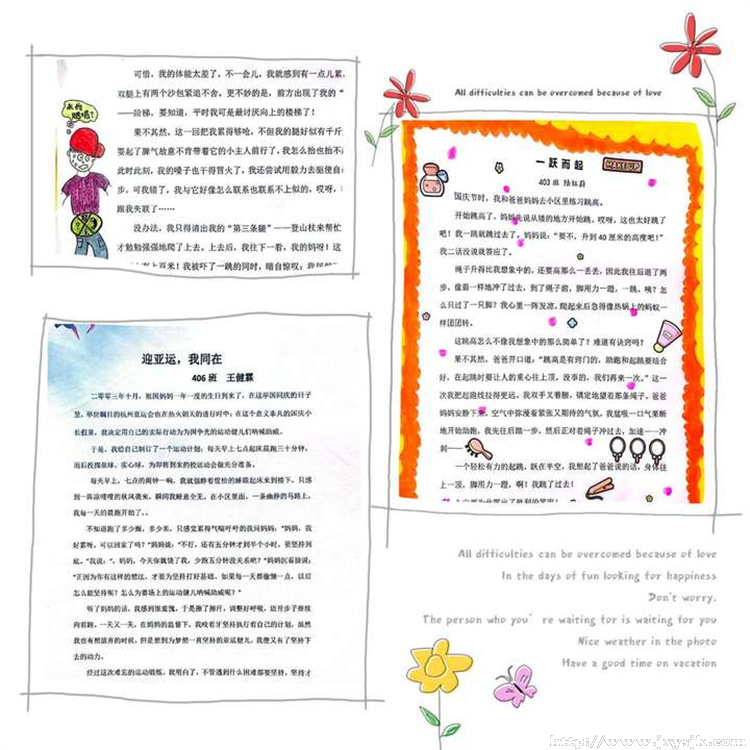 可惜，我的体能太差了，不一会儿，我就感到有一点儿累，
双腿上有两个沙包紧追不舍。更不妙的是，前方出现了我的“
——阶梯，要知道，平时我可是最讨厌向上的楼梯了！
果不其然，这一回把我累得够呛，不但我的腿好似有千斤
耍起了脾气故意不肯带着它的小主人前行了，我怎么抬也抬不
此时此刻，我的嗓子也干得冒火了，我还尝试用毅力去驱使自
步，可我错了，我与它好像怎么联系也联系不上似的，哎呀，
跟我失联了……
没办法，我只得请出我的“第三条腿”——登山杖来帮忙
才勉勉强强地爬了上去。上去后，我往下一看，我的妈呀！这
上百米！我被吓了一跳的同时，暗自惊叹：
All difficulties can be overcomed because of love
一跃而起
MAKE UP
403班
国庆节时，我和爸爸妈妈去小区里练习跳高。
开始跳高了，妈妈先说从矮的地方开始跳，哎呀，这也太好跳了
吧！我一跳就跳过了去。妈妈说：“要不，升到40厘米的高度吧！”
我二话没说就答应了。
绳子升得比我想象中的，还要高那么一丢丢，因此我往后退了两
步，像箭一样地冲了过去，到了绳子前，脚用力一蹬，一跳，咦？怎
么只过了一只脚？我心里一阵发凉，爬起来后急得像热锅上的蚂蚁一
样团团转。
这跳高怎么不像我想象中的那么简单了？难道有诀窍吗？
果不其然，爸爸开口道：“跳高是有窍门的，助跑和起跳要结合
好，在起跳时要让人的重心往上顶，没事的，我们再来一次。”这一
次我把起跑线拉得更远，我双手叉着腰，镇定地望着那条绳子。爸爸
妈妈安静下来，空气中弥漫着紧张又期待的气氛，我猛吸一口气果断
地开始助跑，我先往后踏一步，然后正对着绳子冲过去，加速——冲
刺——
一个轻松有力的起跳，跃在半空，我想起了爸爸说的话，身体往
上一顶，脚用力一蹬，啊！我跳过了！
迎亚运，我同在
406班 王健霖
二零零三年十月，祖国妈妈一年一度的生日到来了，在这举国同庆的日子
里，举世瞩目的杭州亚运会也在热火朝天的进行时中；在这个意义非凡的国庆小
长假里，我决定用自己的实际行动为为国争光的运动健儿们呐喊助威。
于是，我给自己制订了一个运动计划：每天早上七点起床晨跑三十分钟，
而后投掷垒球、实心球，为即将到来的校运动会做充分准备。
每天早上，七点的闹钟一响，我就强睁着惺忪的睡眼起床来到楼下，只感
到一阵凉嗖嗖的秋风袭来，瞬间我睡意全无，在小区里面，一条幽静的马路上，
我每一天的晨跑开始了。
不知道跑了多少圈，多少米，只感觉累得气喘吁吁的我问妈妈：“妈妈，我
好累呀，可以回家了吗？”妈妈说：“不行，还有五分钟才到半个小时，要坚持到
底。”我说：“，妈妈，今天你就饶了我，少跑五分钟没关系吧？”妈妈沉着脸说：
“正因为你有这样的想法，才要为坚持打好基础，如果每一天都偷懒一点，以后
怎么能坚持呢？怎么为赛场上的运动健儿呐喊助威呢？”
听了妈妈的话，我感到很羞愧，于是擦了擦汗，调整好呼吸，迈开步子继续
向前跑，一天又一天，在妈妈的监督下，我咬着牙坚持执行着自己的计划，虽然
我也有想放弃的时候，但是想到为梦想一直坚持的亚运健儿，我便又有了坚持下
去的动力。
经过这次难忘的运动锻炼，我明白了，不管遇到什么困难都要坚持，坚持才
All difficulties can be overcomed because of love
In the days of fun looking for happiness
Don't worry.
The person who you're waiting for is waiting for you
Nice weather in the photo
Have a good time on vacation
http://www.jxysjk.com